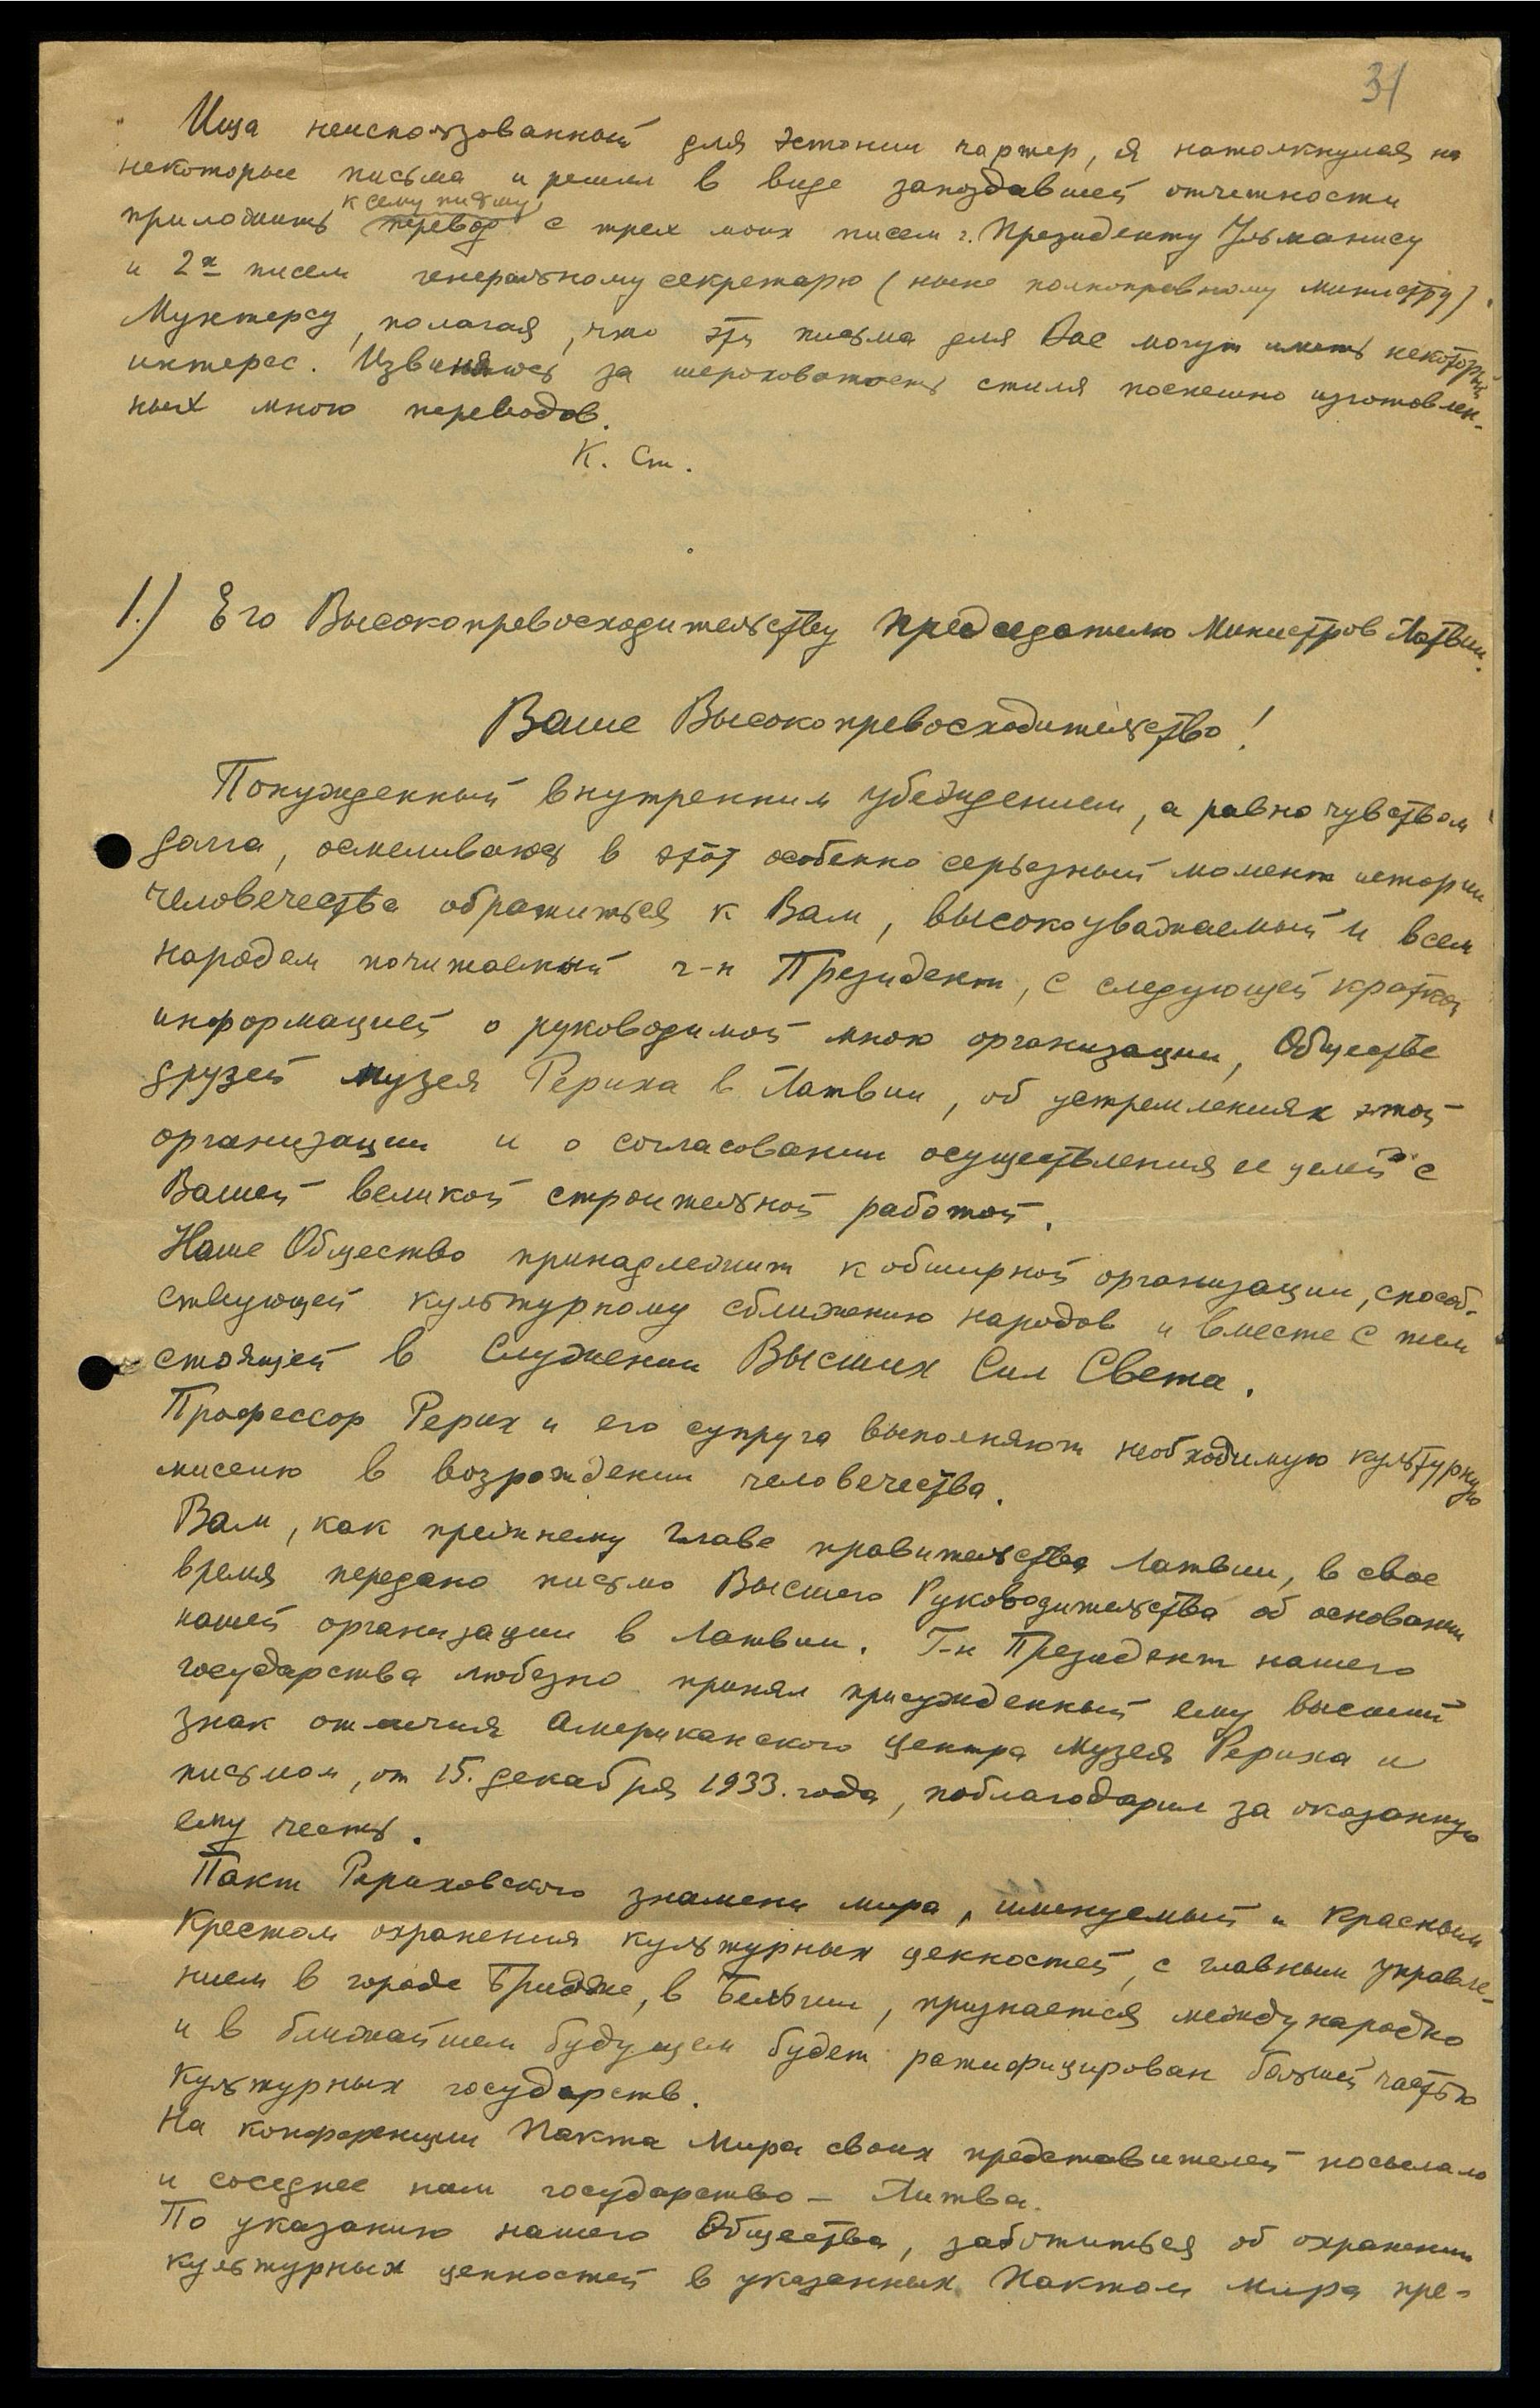 31
Ища неиспользованный для Эстонии чартер, я натолкнулся на
некоторые письма и решил в виде запоздавшей отчетности
к сему письму
приложить перевод с трех моих писем г. Президенту Ульманису
и 2х писем генеральному секретарю (ныне полноправному министру)
Мунтерсу, полагая, что эти письма для Вас могут иметь некоторый
интерес. Извиняюсь за шероховатость стиля поспешно изготовлен-
ных мною переводов.
К. Ст.
1.) Его Высокопревосходительству Председателю Министров Латвии.
Ваше Высокопревосходительство!
Понужденный внутренним убеждением, а равно чувством
долга, осмеливаюсь в этот особенно серьезный момент истории
человечества обратиться к Вам, высокоуважаемый и всем
народом почитаемый г-н Президент, с следующей краткой
информацией о руководимой мною организации, Обществе
друзей музея Рериха в Латвии, об устремлениях этой
организации и о согласовании осуществления ее целей с
Вашей великой строительной работой.
Наше Общество принадлежит к обширной организации, способ-
ствующей культурному сближению народов и вместе с тем
стоящей в Служении Высших Сил Света.
Профессор Рерих и его супруга выполняют необходимую культурную
миссию в возрождении человечества.
Вам, как прежнему Главе правительства Латвии, в свое
время передано письмо Высшего Руководительства об основании
нашей организации в Латвии. Г-н Президент нашего
государства любезно принял присужденный ему высший
знак отличия Американского Центра Музея Рериха и
письмом, от 15. декабря 1933. года, поблагодарил за оказанную
ему честь.
Пакт Рериховского знамени мира, именуемый и Красным
Крестом охранения культурных ценностей, с главным управле-
нием в городе Бридже, в Бельгии, признается международно
и в ближайшем будущем будет ратифицирован большей частью
культурных государств.
На конференции Пакта Мира своих представителей посылало
и соседнее нам государство – Литва.
По указанию нашего Общества, заботиться об охранении
культурных ценностей в указанных Пактом Мира пре-